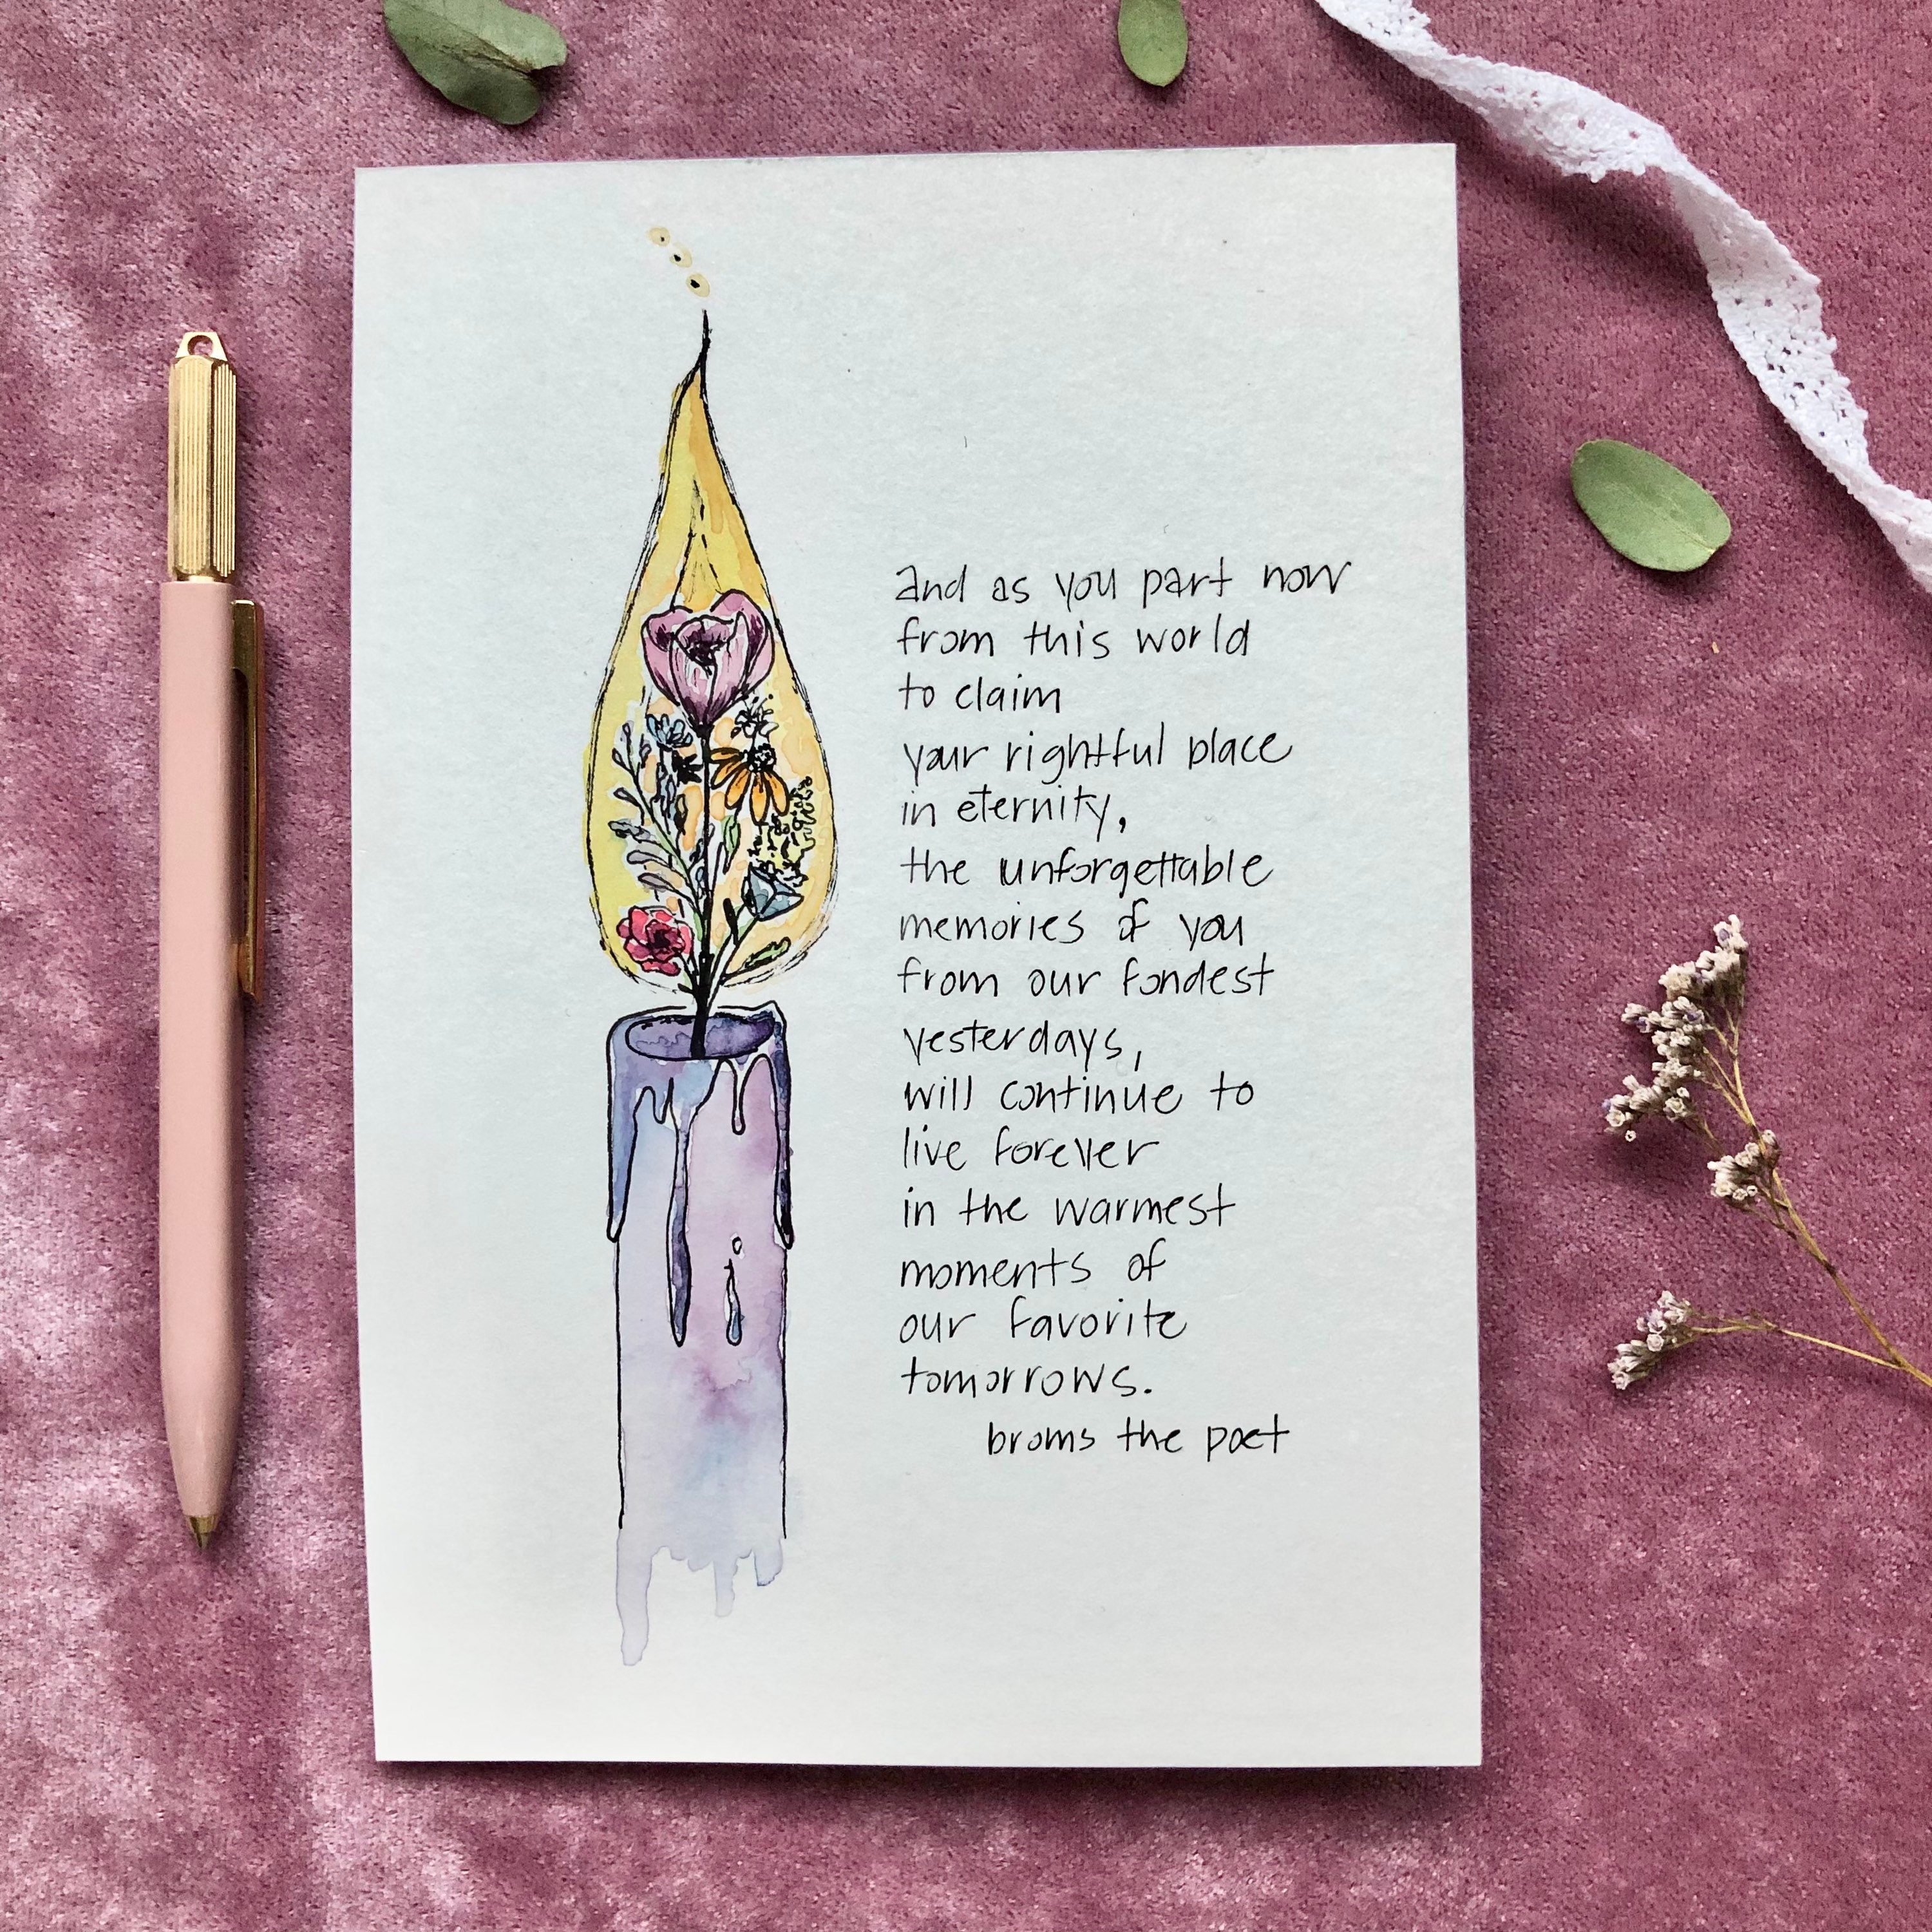 and as you part now
from this world
to claim
your rightful place
in eternity,
the unforgettable
memories of you
from our fondest
yesterdays,
will continue to
live forever
in the warmest
moments of
our favorite
tomorrows.
broms the poet